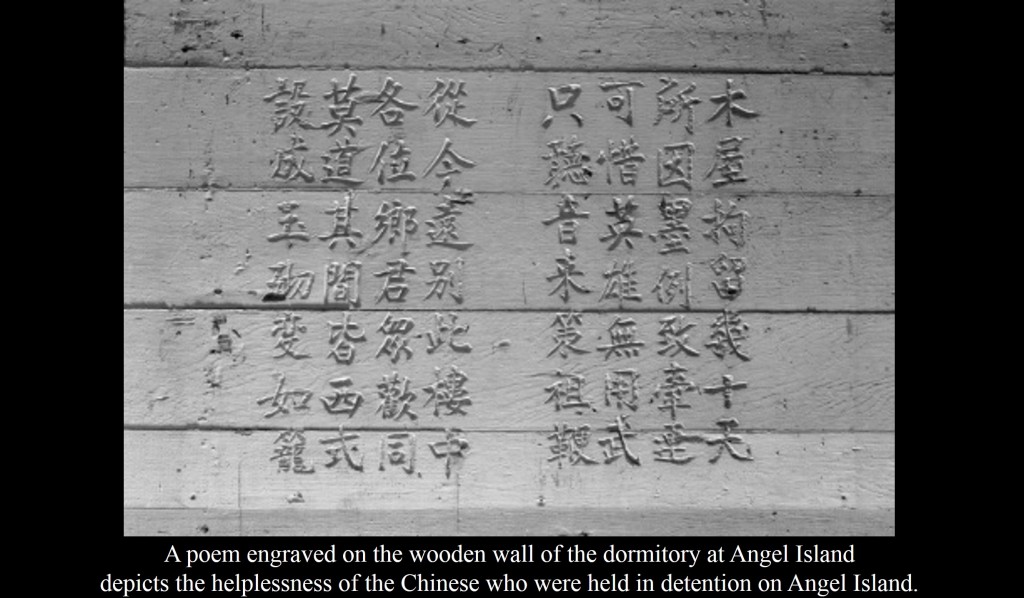 木屋拘留幾十天
所囚墨例致牽連
可惜英雄無用武
只聽音来策祖鞭
從今遠別此樓中
各位鄉君眾歡同
莫道其間皆西式
設成玉砌變如籠
A poem engraved on the wooden wall of the dormitory at Angel Island
depicts the helplessness of the Chinese who were held in detention on Angel Island.